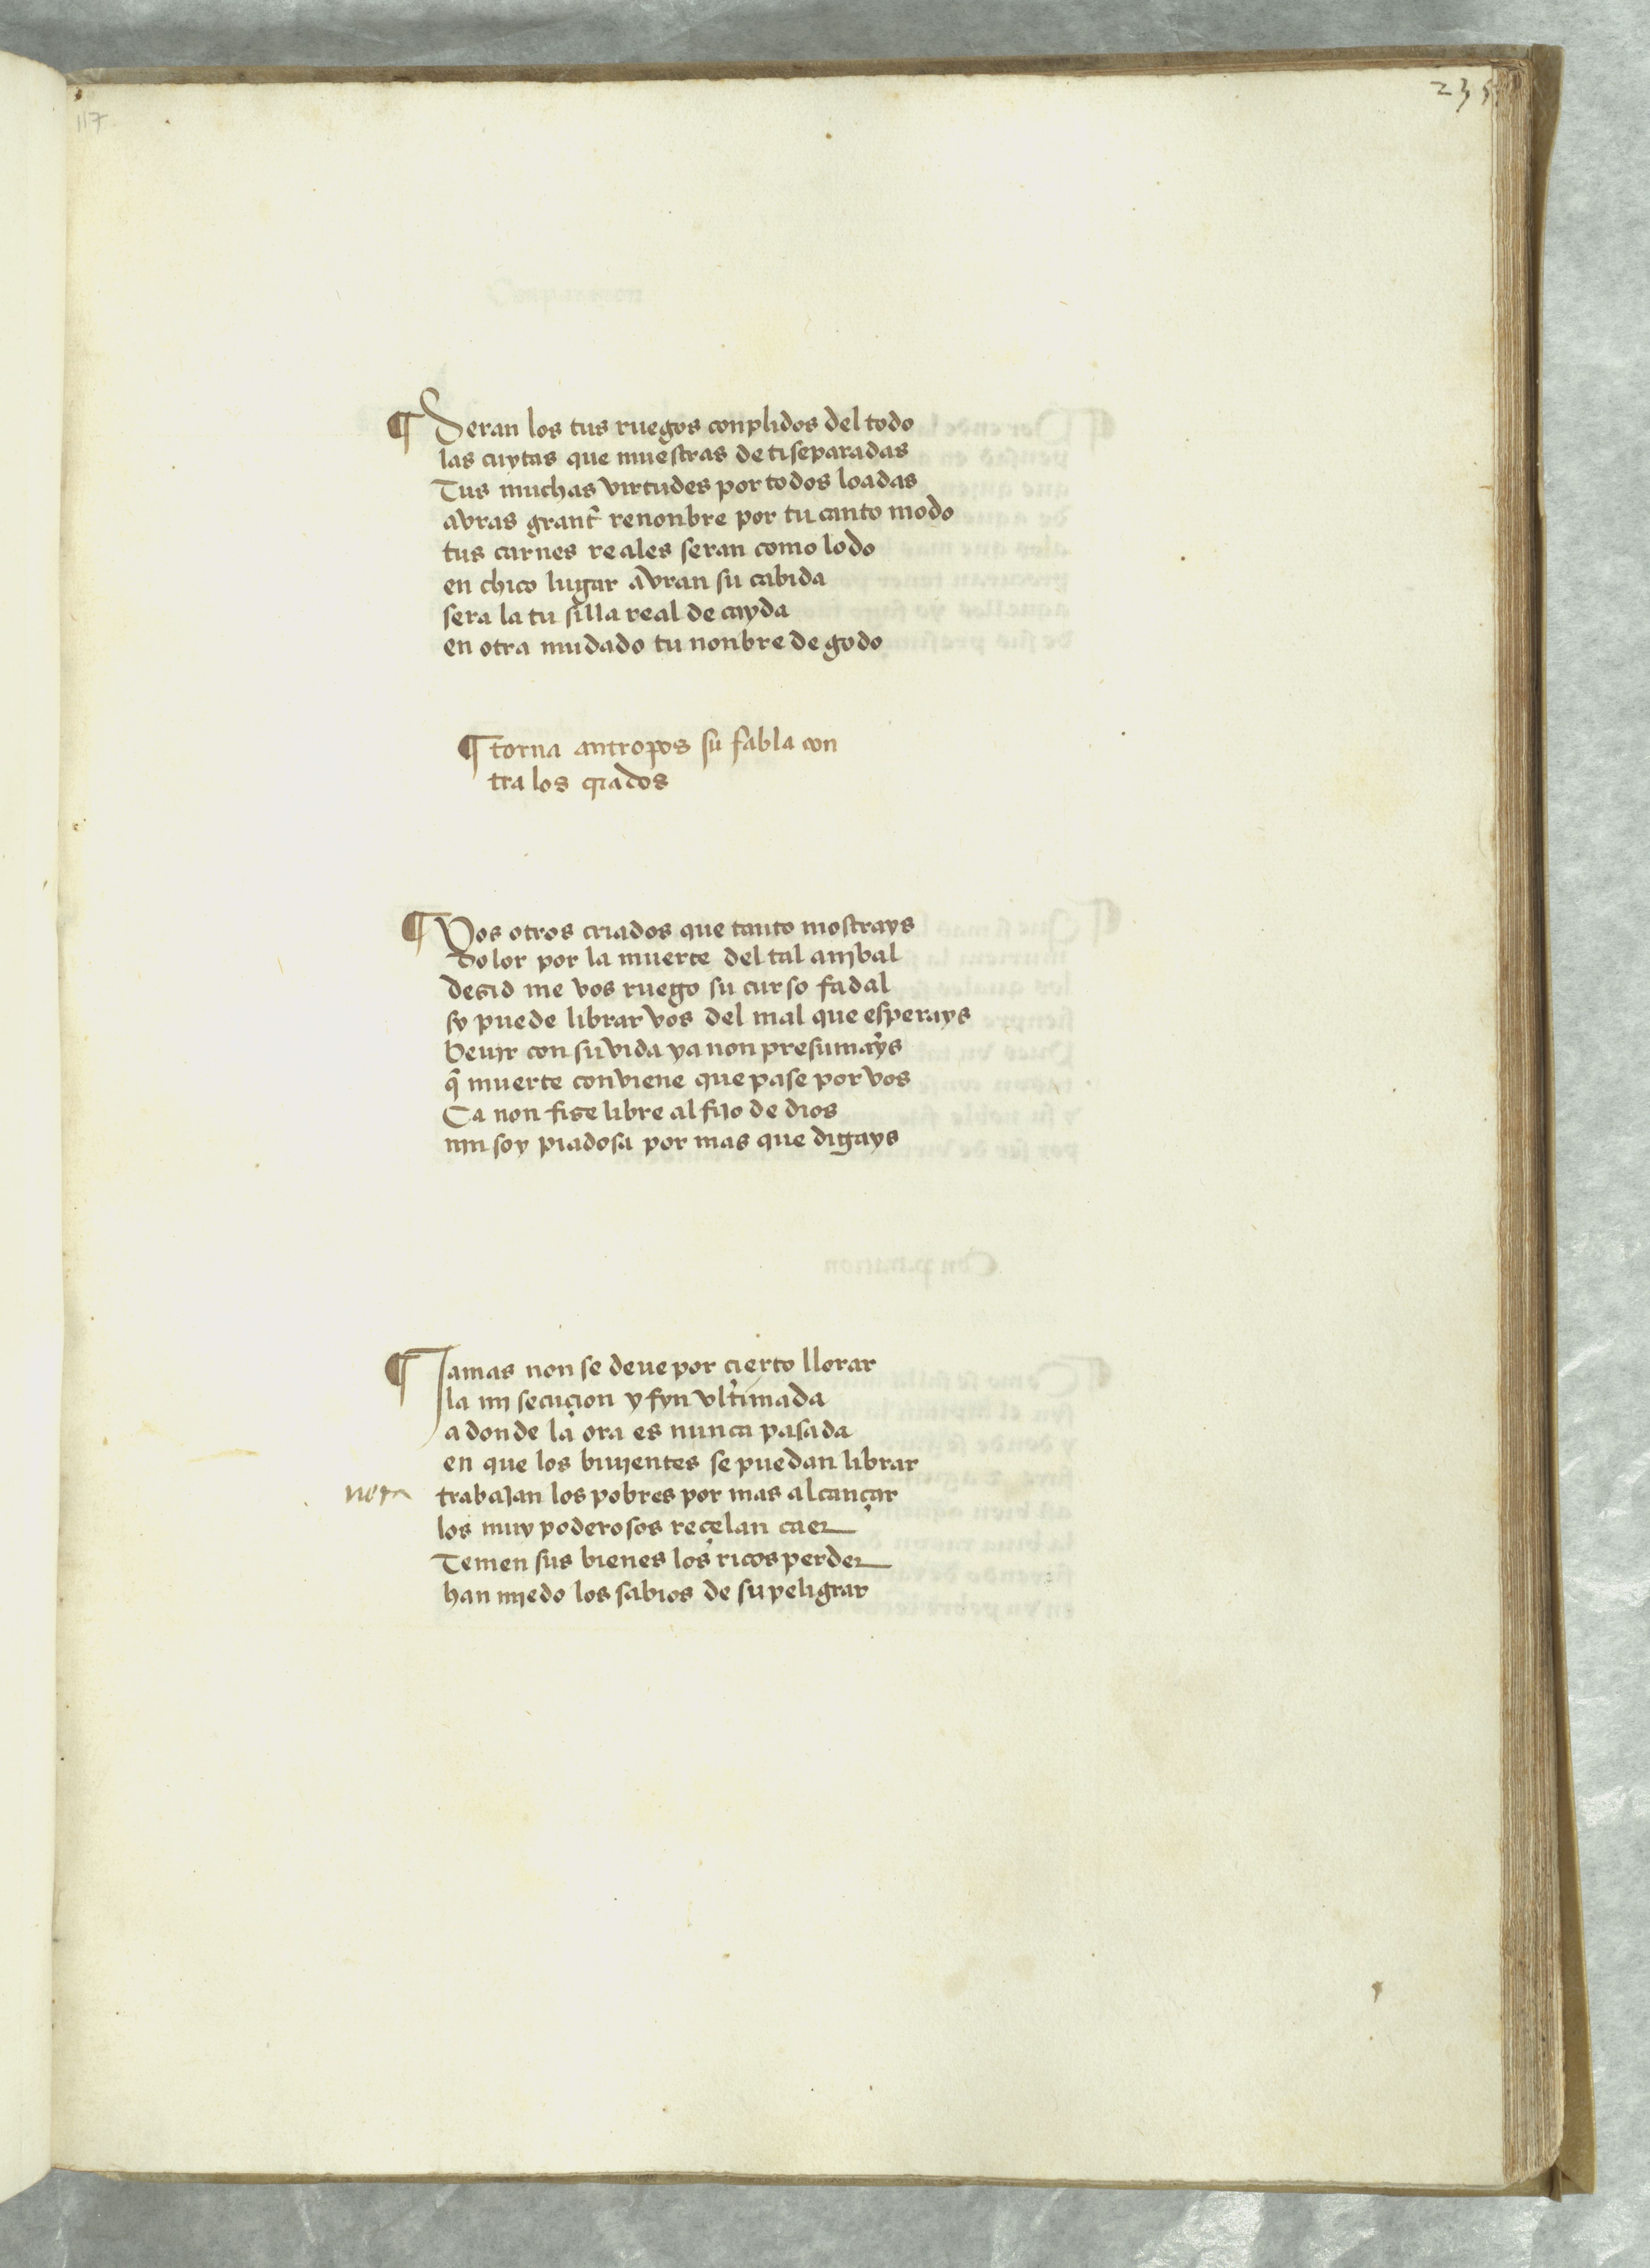 117
¶ Seran los tus ruegos conplidos del todo
las cuytas que muestras de ti separadas
Tus muchas virtudes por todos loadas
avras grant renonbre por tu canto modo
tus carnes reales seran como lodo
en chico lugar avran su cabida
sera la tu silla real de cayda
en otra mudado tu nonbre de godo
¶ torna antropos su fabla con
tra los criados
¶ Vos otros criados que tanto mostrays
dolor por la muerte del tal anjbal
dezid me vos ruego su curso fadal
sy puede librar vos del mal que esperays
beujr con su vida ya non presumays
q̃ muerte conviene que pase por vos
Ca non fize libre al fijo de dios
njn soy piadosa por mas que digays
¶ Jamas non se deue por cierto llorar
la mj secuçion y fyn vltimada
a donde la ora es nunca pasada
en que los biujentes se puedan librar
nota
trabajan los pobres por mas alcançar
los muy poderosos reçelan caer
Temen sus bienes los ricos perder
han mjedo los sabios de su peligrar